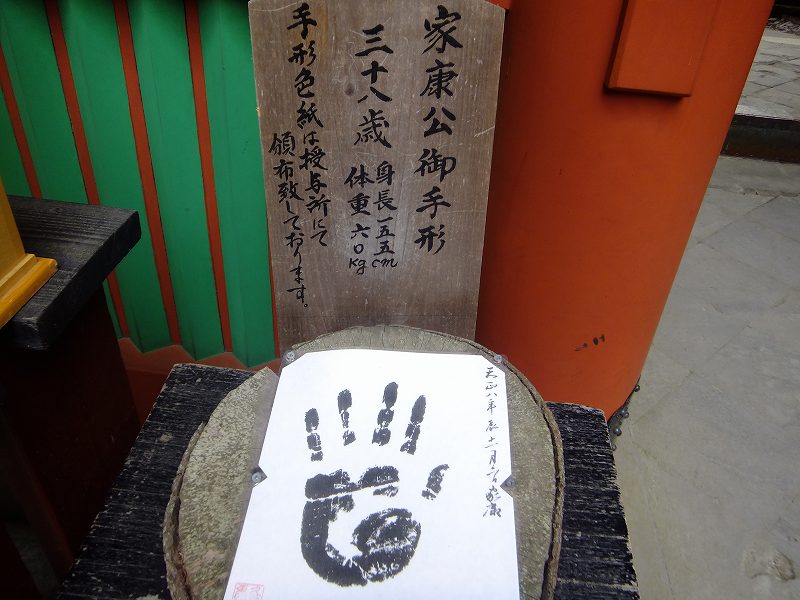 家康公御手形
三十八歳
身長一五五cm
体重六〇kg
手形色紙は授与所にて
頒布致しております。
天正八年辰十一月
家康